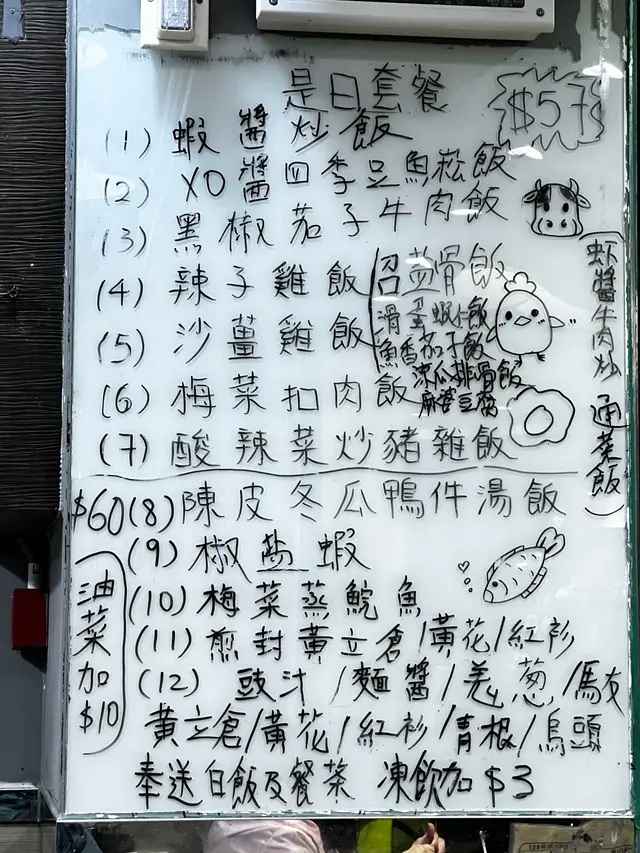 是日套餐 $57
(1) 蝦醬炒飯
(2) XO醬四季豆魚崧飯
(3) 黑椒茄子牛肉飯
(4) 辣子雞飯
(5) 沙薑雞飯
(6) 梅菜扣肉飯
(7) 酸辣菜炒豬雜飯
蒸骨飯
滑蛋蝦仁飯
魚香茄子飯
涼瓜排骨飯
麻婆豆腐
虾醬牛肉炒通菜飯
$60 (8) 陳皮冬瓜鴨件湯飯
(9) 椒盐蝦
(10) 梅菜蒸鯇魚
(11) 煎封黃立倉/黃花/紅衫
(12) 豉汁/麵醬/羌葱/
黃立倉/黃花/紅衫/青根/烏頭
油菜加$10
奉送白飯及餐茶 凍飲加$3